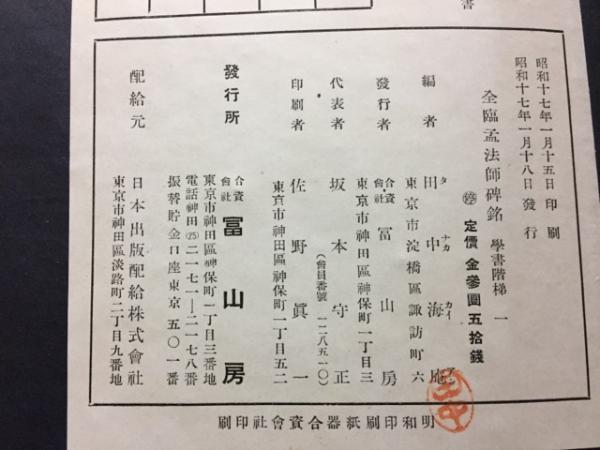 書
昭和十七年一月十五日印刷
昭和十七年一月十八日發行
全臨孟法師碑銘 學書階梯 一
㊞ 定價 金參圓五拾錢
編者 田中海庵
タ ナカ カイ アン
東京市淀橋區諏訪町六
發行者 合資會社 冨山房
東京市神田區神保町一丁目三
代表者 坂本守正
(會員番號 一二八五一〇)
印刷者 佐野眞一
東京市神田區神保町一丁目五二
發行所 合資會社 冨山房
東京市神田區神保町一丁目三番地
電話神田(25)二一七一—二一七八番
振替貯金口座東京 五〇一番
配給元 日本出版配給株式會社
東京市神田區淡路町二丁目九番地
明和印刷紙器合資會社印刷